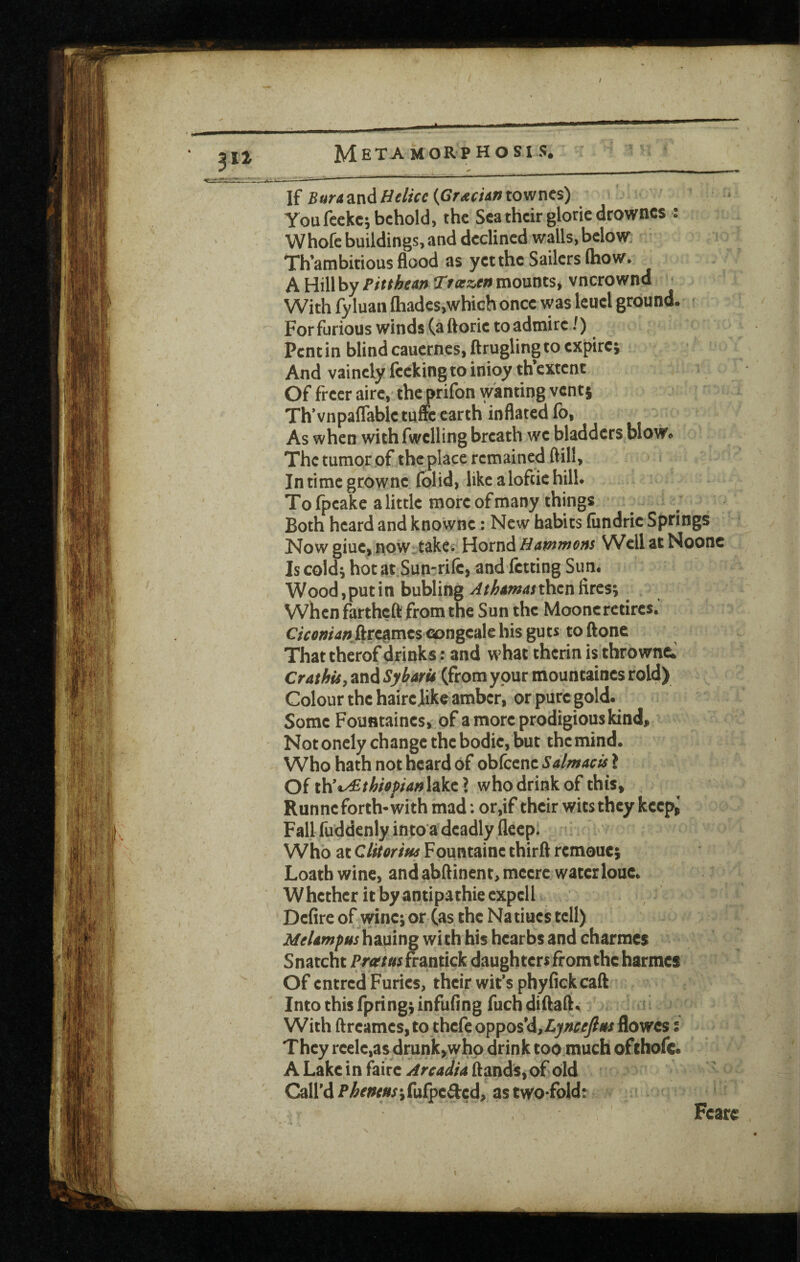 312 METAMORPHOSIS.
If Bura and Helice (Græcian townes)
You ſeeke; behold, the Sea their glorie drownes :
Whoſe buildings, and declined walls, below
Th'ambitious flood as yet the Sailers ſhow.
A Hill by Pitthean Trœzen mounts, vncrownd
With ſyluan ſhades, which once was leuel ground.
For furious winds (a ſtorie to admire !)
Pent in blind cauernes, ſtrugling to expire;
And vainely ſeeking to inioy th'extent
Of freer aire, the priſon wanting vent;
Th'vnpaſſable tuffe earth inflated ſo,
As when with ſwelling breath we bladders blow.
The tumor of the place remained ſtill,
In time growne ſolid, like a loftie hill.
To ſpeake a little more of many things
Both heard and knowne : New habits ſundrie Springs
Now giue, now take. Hornd Hammons Well at Noone
Is cold; hot at Sun-riſe, and ſetting Sun.
Wood, put in bubling Athamas then fires;
When fartheſt from the Sun the Moone retires.
Ciconian ſtreames congeale his guts to ſtone
That therof drinks : and what therin is throwne.
Crathis, and Sybaris (from your mountaines rold)
Colour the haire like amber, or pure gold.
Some Fountaines, of a more prodigious kind,
Not onely change the bodie, but the mind.
Who hath not heard of obſcene Salmacis ?
Of th'Æthiopian lake ? who drink of this,
Runne forth-with mad : or, if their wits they keep,
Fall ſuddenly into a deadly ſleep.
Who at Clitorius Fountaine thirſt remoue;
Loath wine, and abſtinent, meere water loue.
Whether it by antipathie expell
Deſire of wine; or (as the Natiues tell)
Melampus hauing with his hearbs and charmes
Snatcht Prœtus frantick daughters from the harmes
Of entred Furies, their wit's phyſick caſt
Into this ſpring; infuſing ſuch diſtaſt.
With ſtreames, to theſe oppos'd, Lynceſtus flowes :
They reele, as drunk, who drink too much of thoſe.
A Lake in faire Arcadia ſtands, of old
Call'd Pheneus; ſuſpected, as two-fold :
Feare